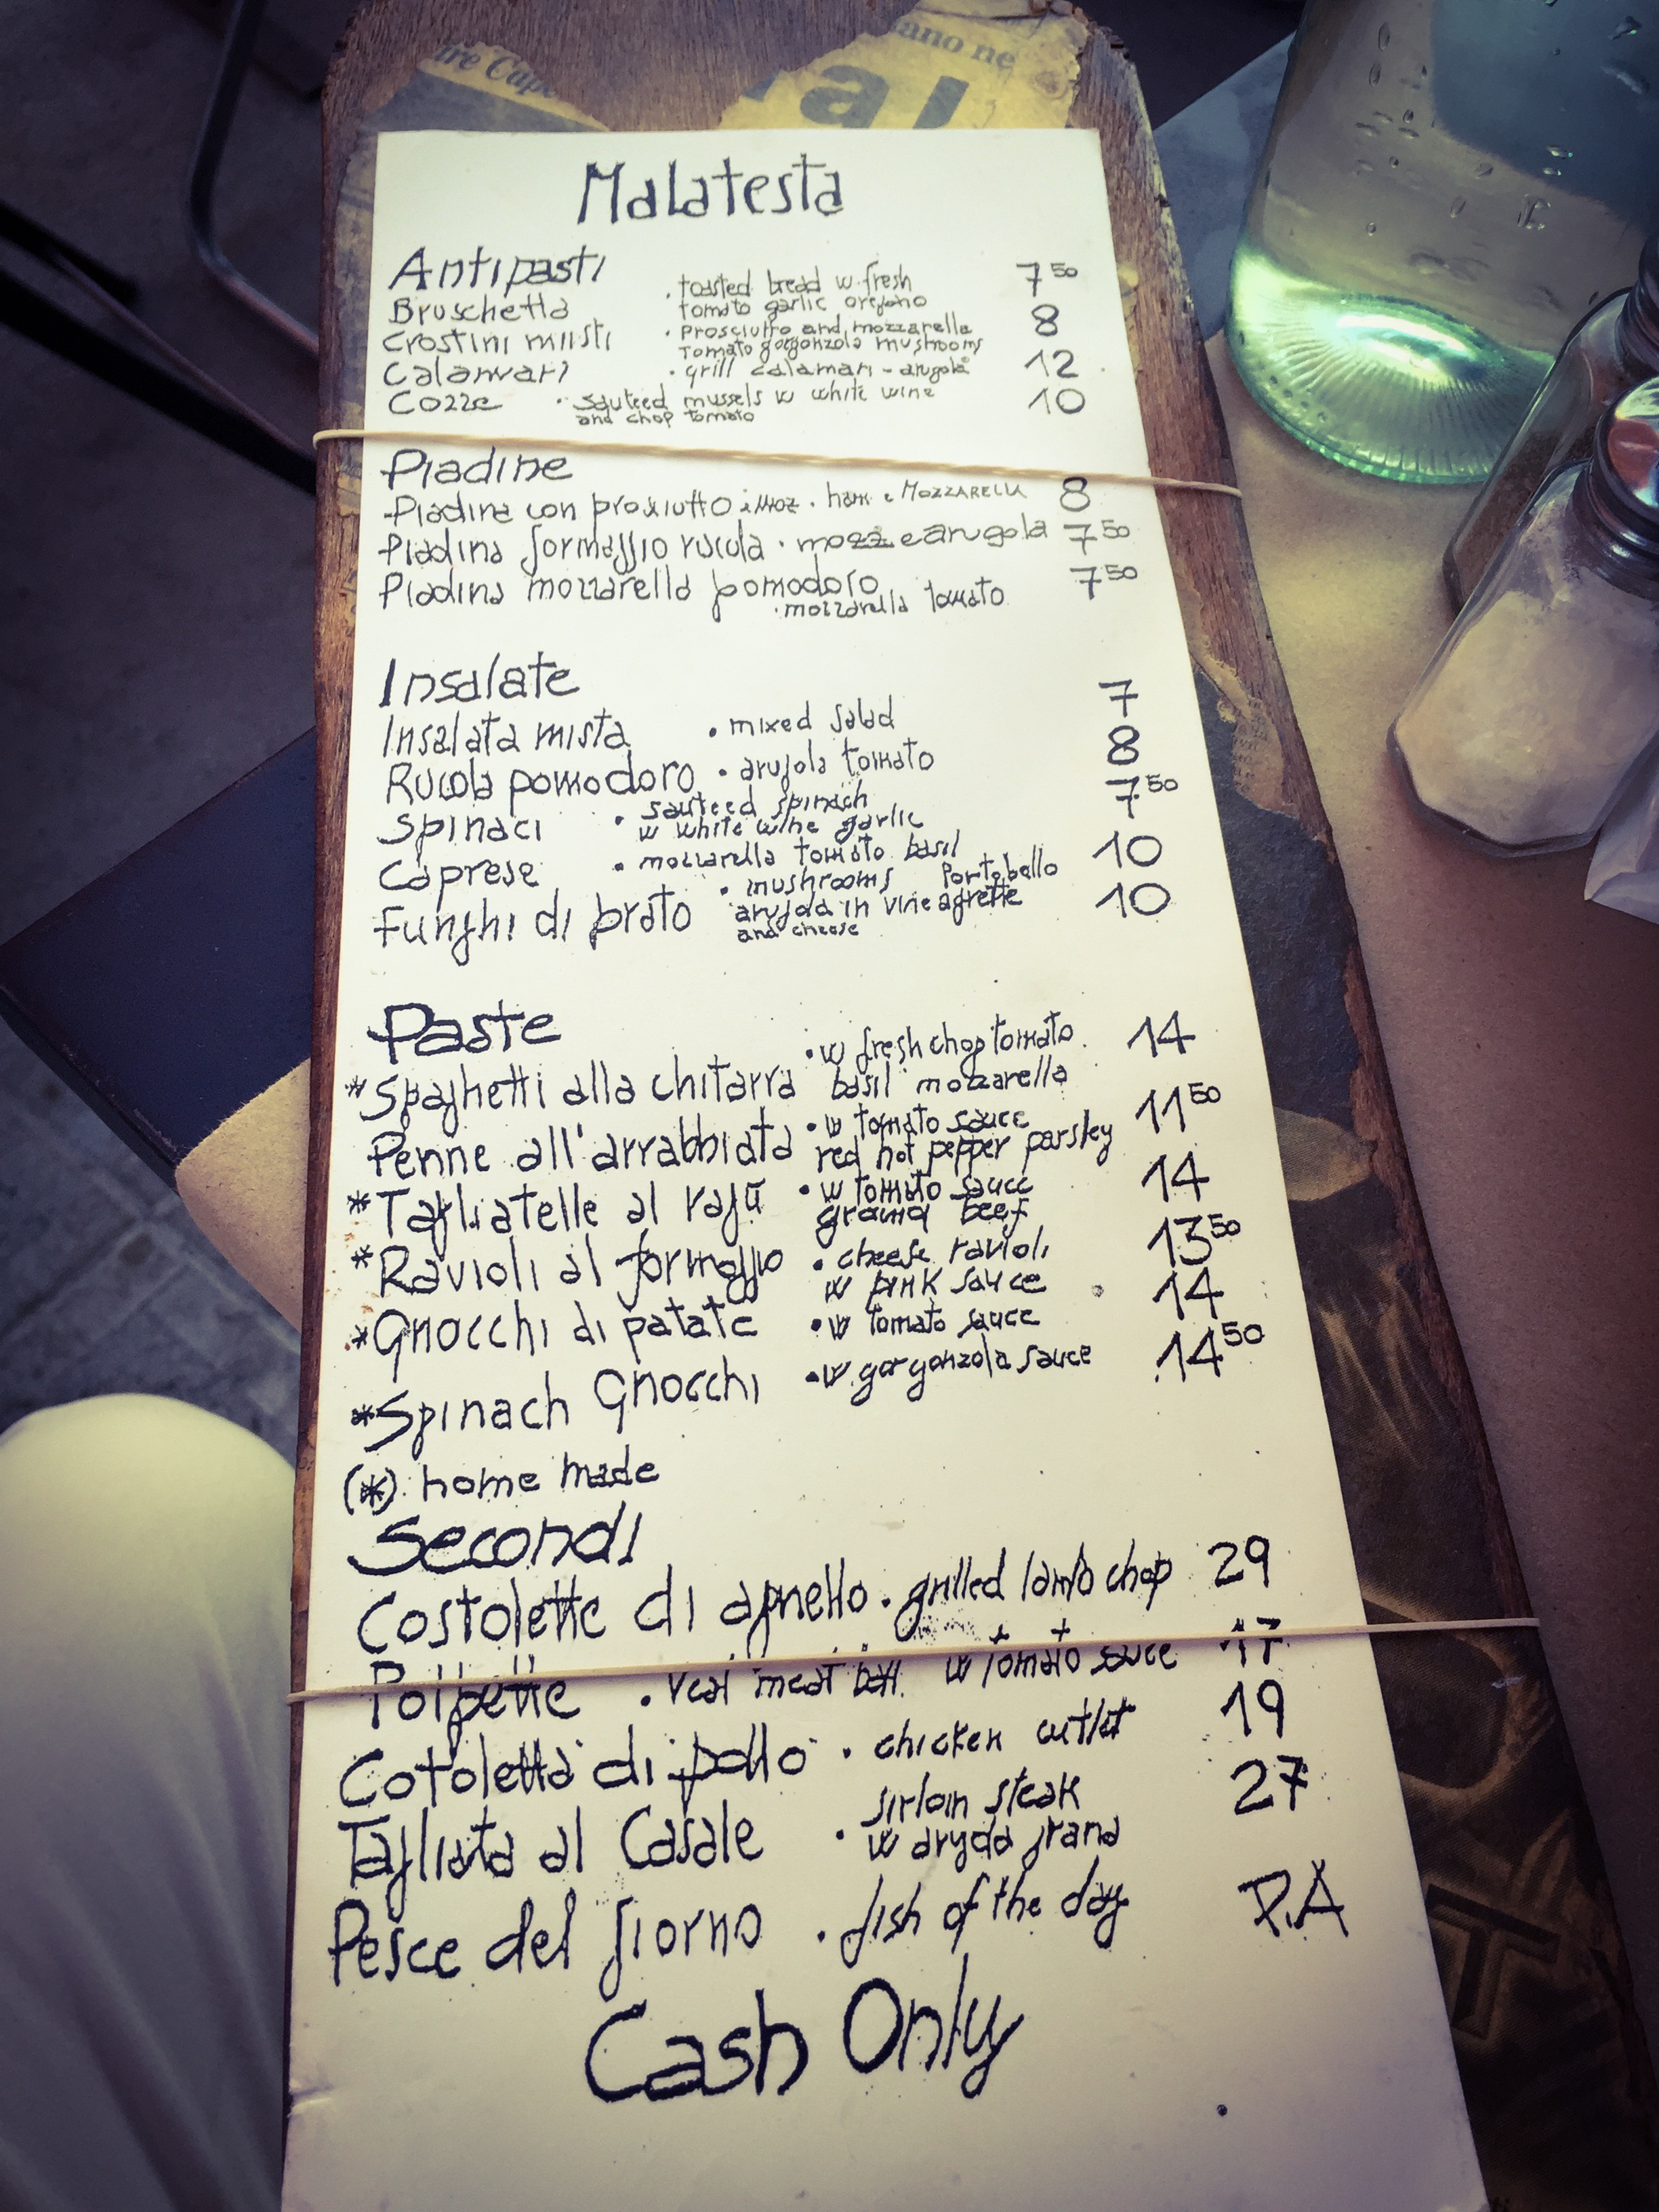 ire Cap
ano ne
al
Malatesta
Antipasti
Bruschetta . toasted bread w fresh 7 50
tomato garlic oregano
Crostini miisti . prosciutto and mozzarella 8
Tomato gorgonzola mushrooms
Calamari . grill calamari - arugola 12
Cozze . sauteed mussels w white wine 10
and chop tomato
Piadine
Piadina con prosciutto . ham e MOZZARELLA 8
Piadina formaggio rucola . mozz e arugola 7 50
Piadina mozzarella pomodoro 7 50
. mozzarella tomato
Insalate
Insalata mista . mixed salad 7
Rucola pomodoro . arugola tomato 8
Spinaci . sauteed spinach 7 50
w white wine garlic
Caprese . mozzarella tomato basil 10
Funghi di prato . mushrooms Portobello 10
arugola in vineagrette
and cheese
Paste
*Spaghetti alla chitarra . w fresh chop tomato 14
basil mozzarella
Penne all'arrabbiata . w tomato sauce 11 50
red hot pepper parsley
*Tagliatelle al ragū . w tomato sauce 14
ground beef
*Ravioli al formaggio . cheese ravioli 13 50
w pink sauce
*Gnocchi di patate . w tomato sauce 14
*Spinach Gnocchi . w gorgonzola sauce 14 50
(*) home made
Secondi
Costolette di agnello . grilled lamb chop 29
Polpette . veal meat ball w tomato sauce 17
Cotoletta di pollo . chicken cutlet 19
Tagliata al Casale . sirloin steak 27
w arugola grana
Pesce del giorno . fish of the day P.A
Cash Only